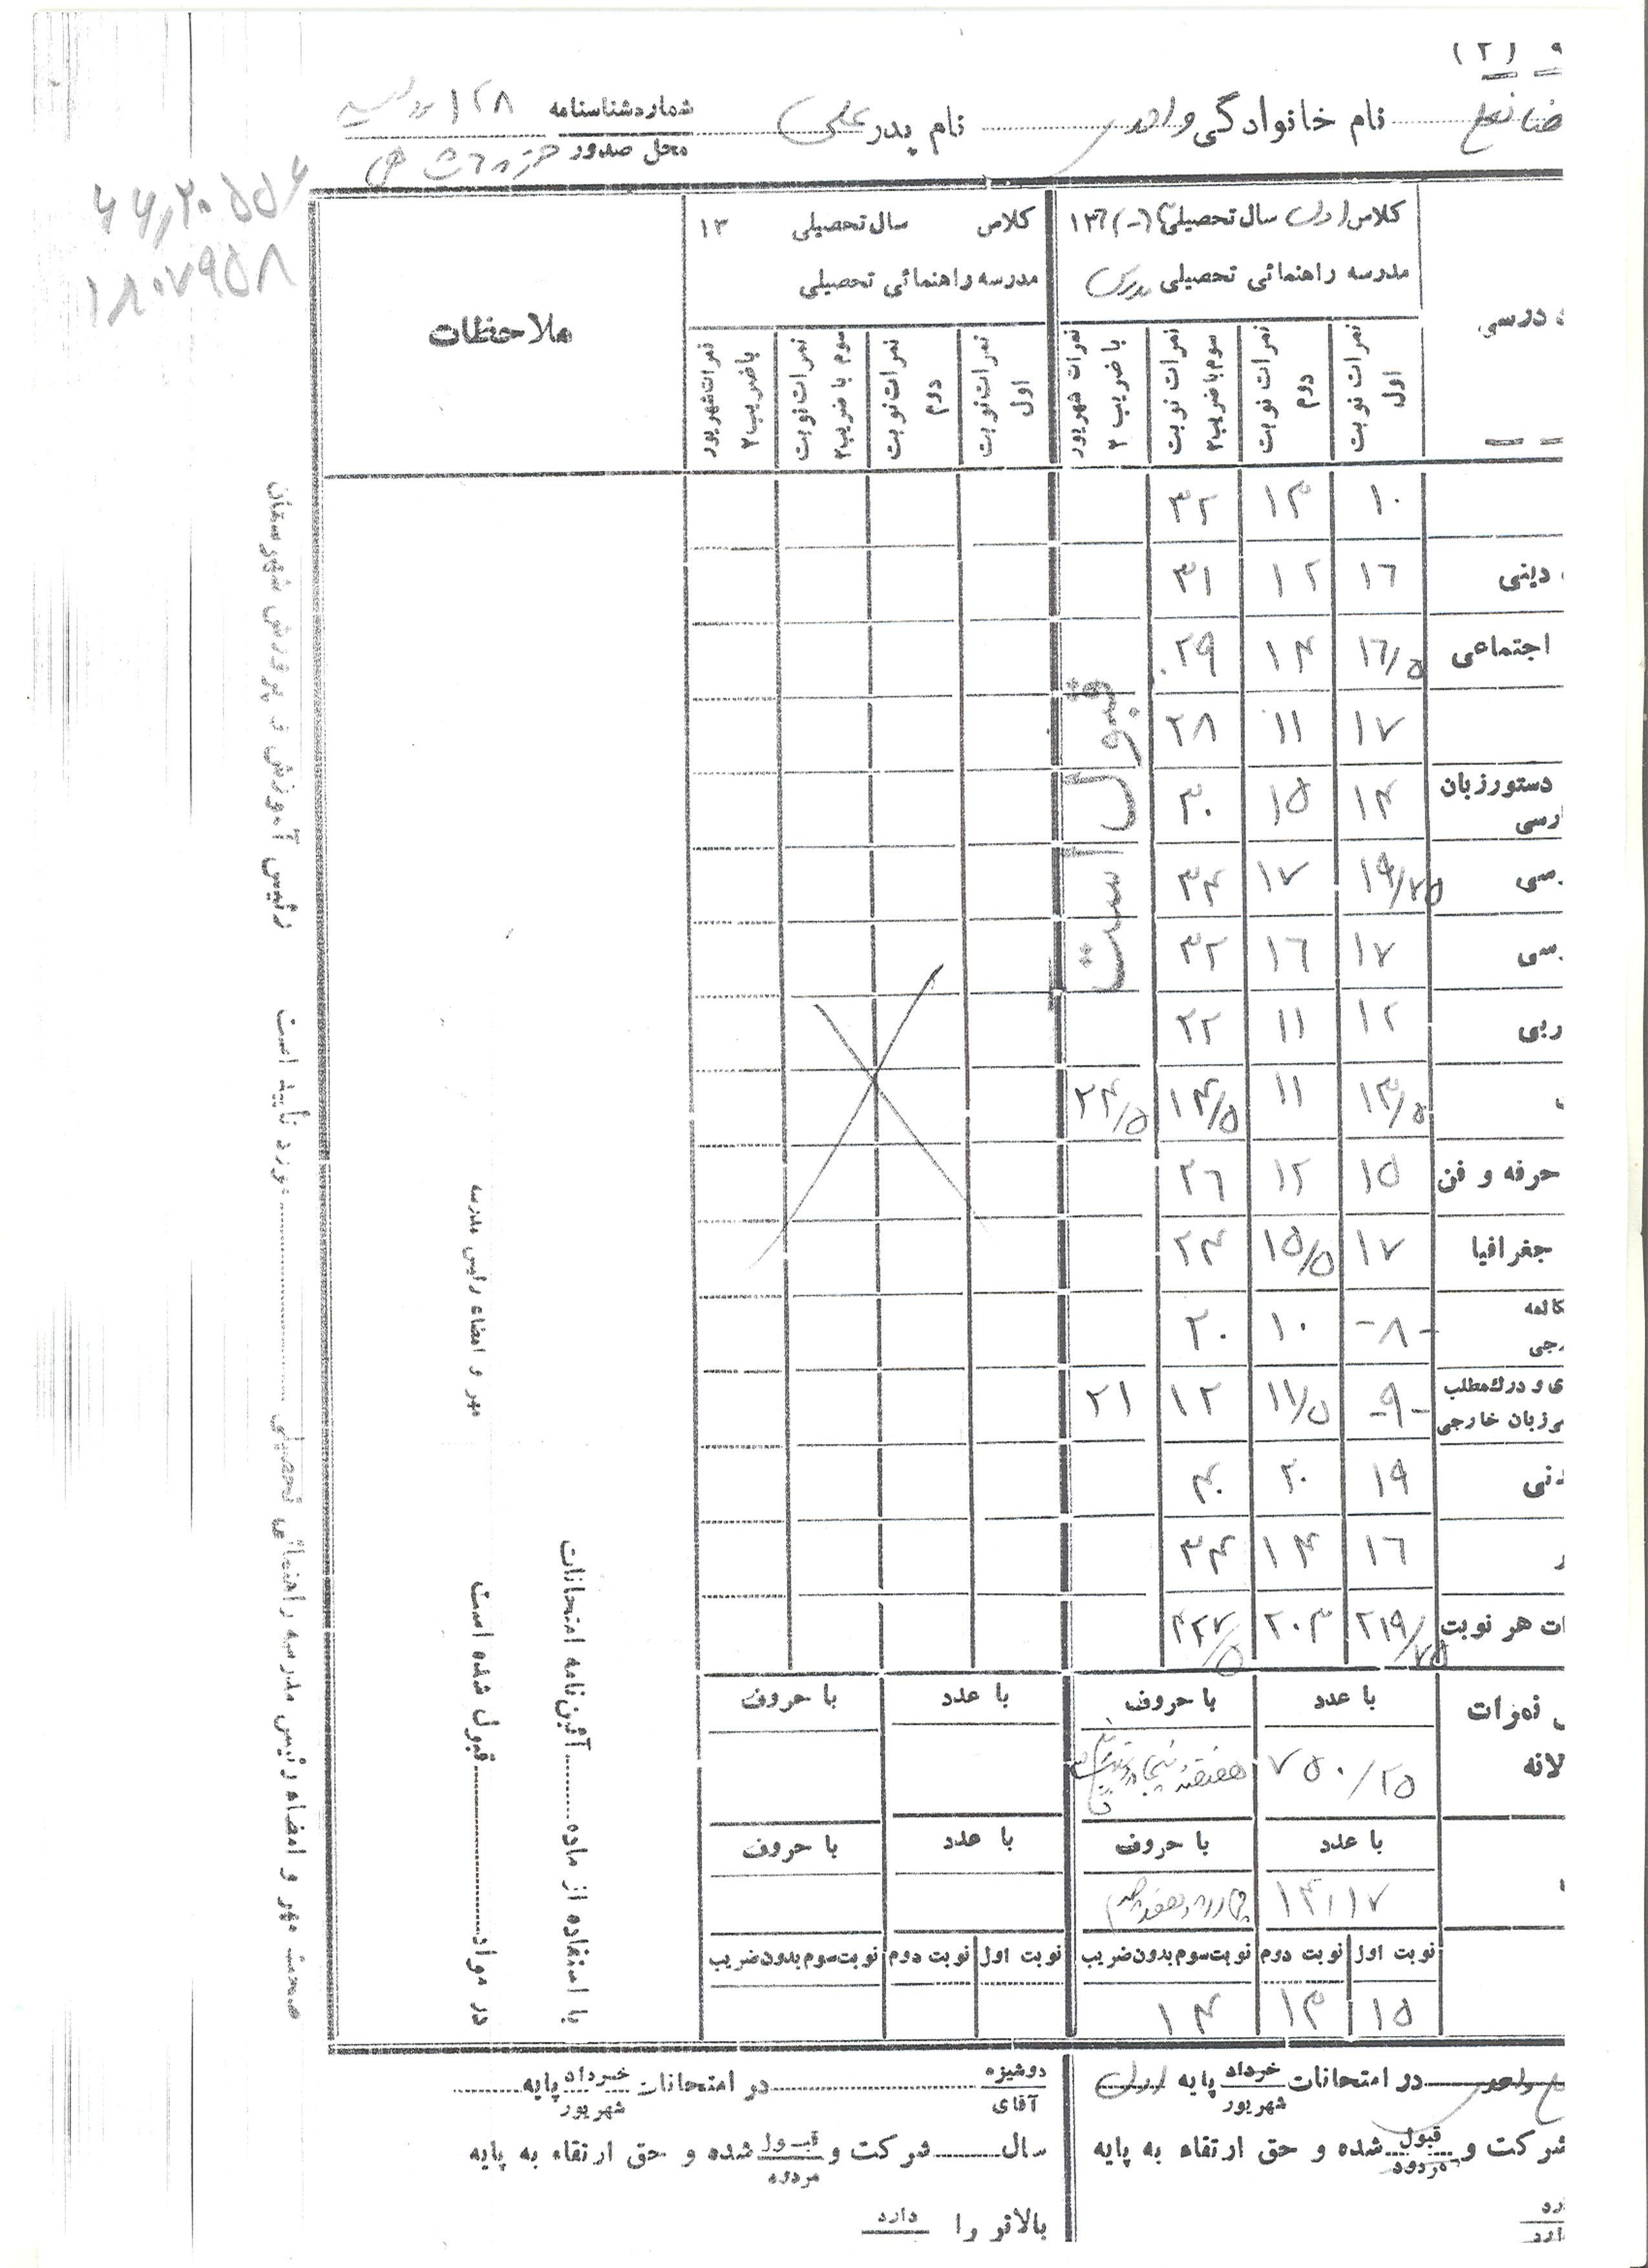 ۹ (۲)
نام خانوادگی نام پدر علی شماره شناسنامه ۱۲۸
محل صدور
۱۸۰۷۹۵۸
کلاس اول سال تحصیلی ۱۳۶
مدرسه راهنمائی تحصیلی مدرس
کلاس سال تحصیلی ۱۳
مدرسه راهنمائی تحصیلی
ملاحظات
درسی
نمرات نوبت اول
نمرات نوبت دوم
نمرات نوبت سوم با ضریب ۲
نمرات شهریور با ضریب ۲
نمرات نوبت اول
نمرات نوبت دوم
نمرات نوبت سوم با ضریب ۲
نمرات شهریور با ضریب ۲
۱۰ ۱۳ ۳۲
دینی ۱۶ ۱۲ ۳۱
اجتماعی ۱۶/۵ ۱۴ ۲۹
۱۷ ۱۱ ۲۸
دستور زبان ۱۴ ۱۵ ۳۰
رسی
سی ۱۹/۷۵ ۱۷ ۳۴
سی ۱۷ ۱۶ ۳۲
ربی ۱۲ ۱۱ ۲۲
۱۳/۵ ۱۱ ۱۴/۵ ۲۴/۵
حرفه و فن ۱۵ ۱۲ ۲۶
جغرافیا ۱۷ ۱۵/۵ ۲۴
کالمه
رجی -۸- ۱۰ ۲۰
ی و درك مطلب
زبان خارجی -۹- ۱۱/۵ ۱۲ ۲۱
دنی ۱۹ ۲۰ ۴۰
۱۶ ۱۴ ۳۴
ات هر نوبت ۲۱۹/۷۵ ۲۰۳ ۴۲۷/۵
قبول است
نمرات با عدد با حروف با عدد با حروف
لانه ۷۵۰/۲۵
با عدد با حروف با عدد با حروف
۱۴,۱۷
نوبت اول نوبت دوم نوبت سوم بدون ضریب نوبت اول نوبت دوم نوبت سوم بدون ضریب
۱۵ ۱۳ ۱۴
در امتحانات خرداد شهریور پایه اول
شرکت و قبول مردود شده و حق ارتقاء به پایه
دارد
دوشیزه آقای در امتحانات خرداد شهریور پایه
سال شرکت و قبول مردود شده و حق ارتقاء به پایه
بالاتر را دارد
با استفاده از ماده آئین نامه امتحانات
در مواد قبول شده است
مهر و امضاء رئیس مدرسه
صحت مهر و امضاء رئیس مدرسه راهنمائی تحصیلی مورد تأیید است رئیس آموزش و پرورش شهرستان